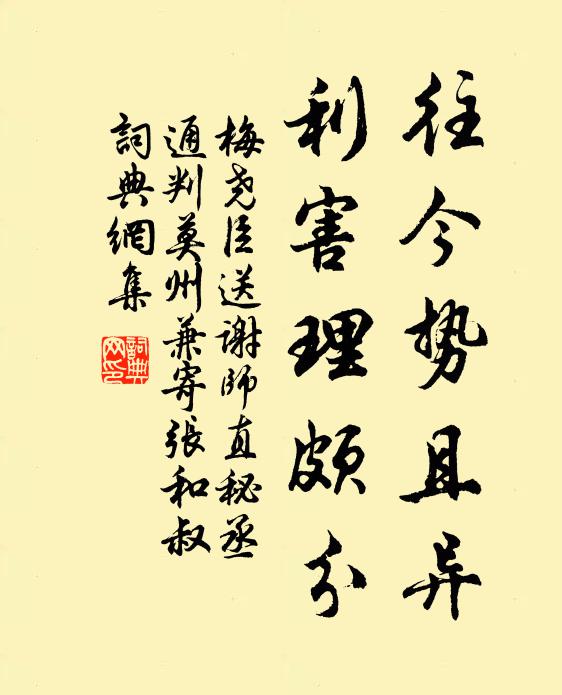 往今势且异
利害理頗分
梅尧臣送谢師直秘丞
通判莫州兼寄張和叔
詞典網集
詞典网印